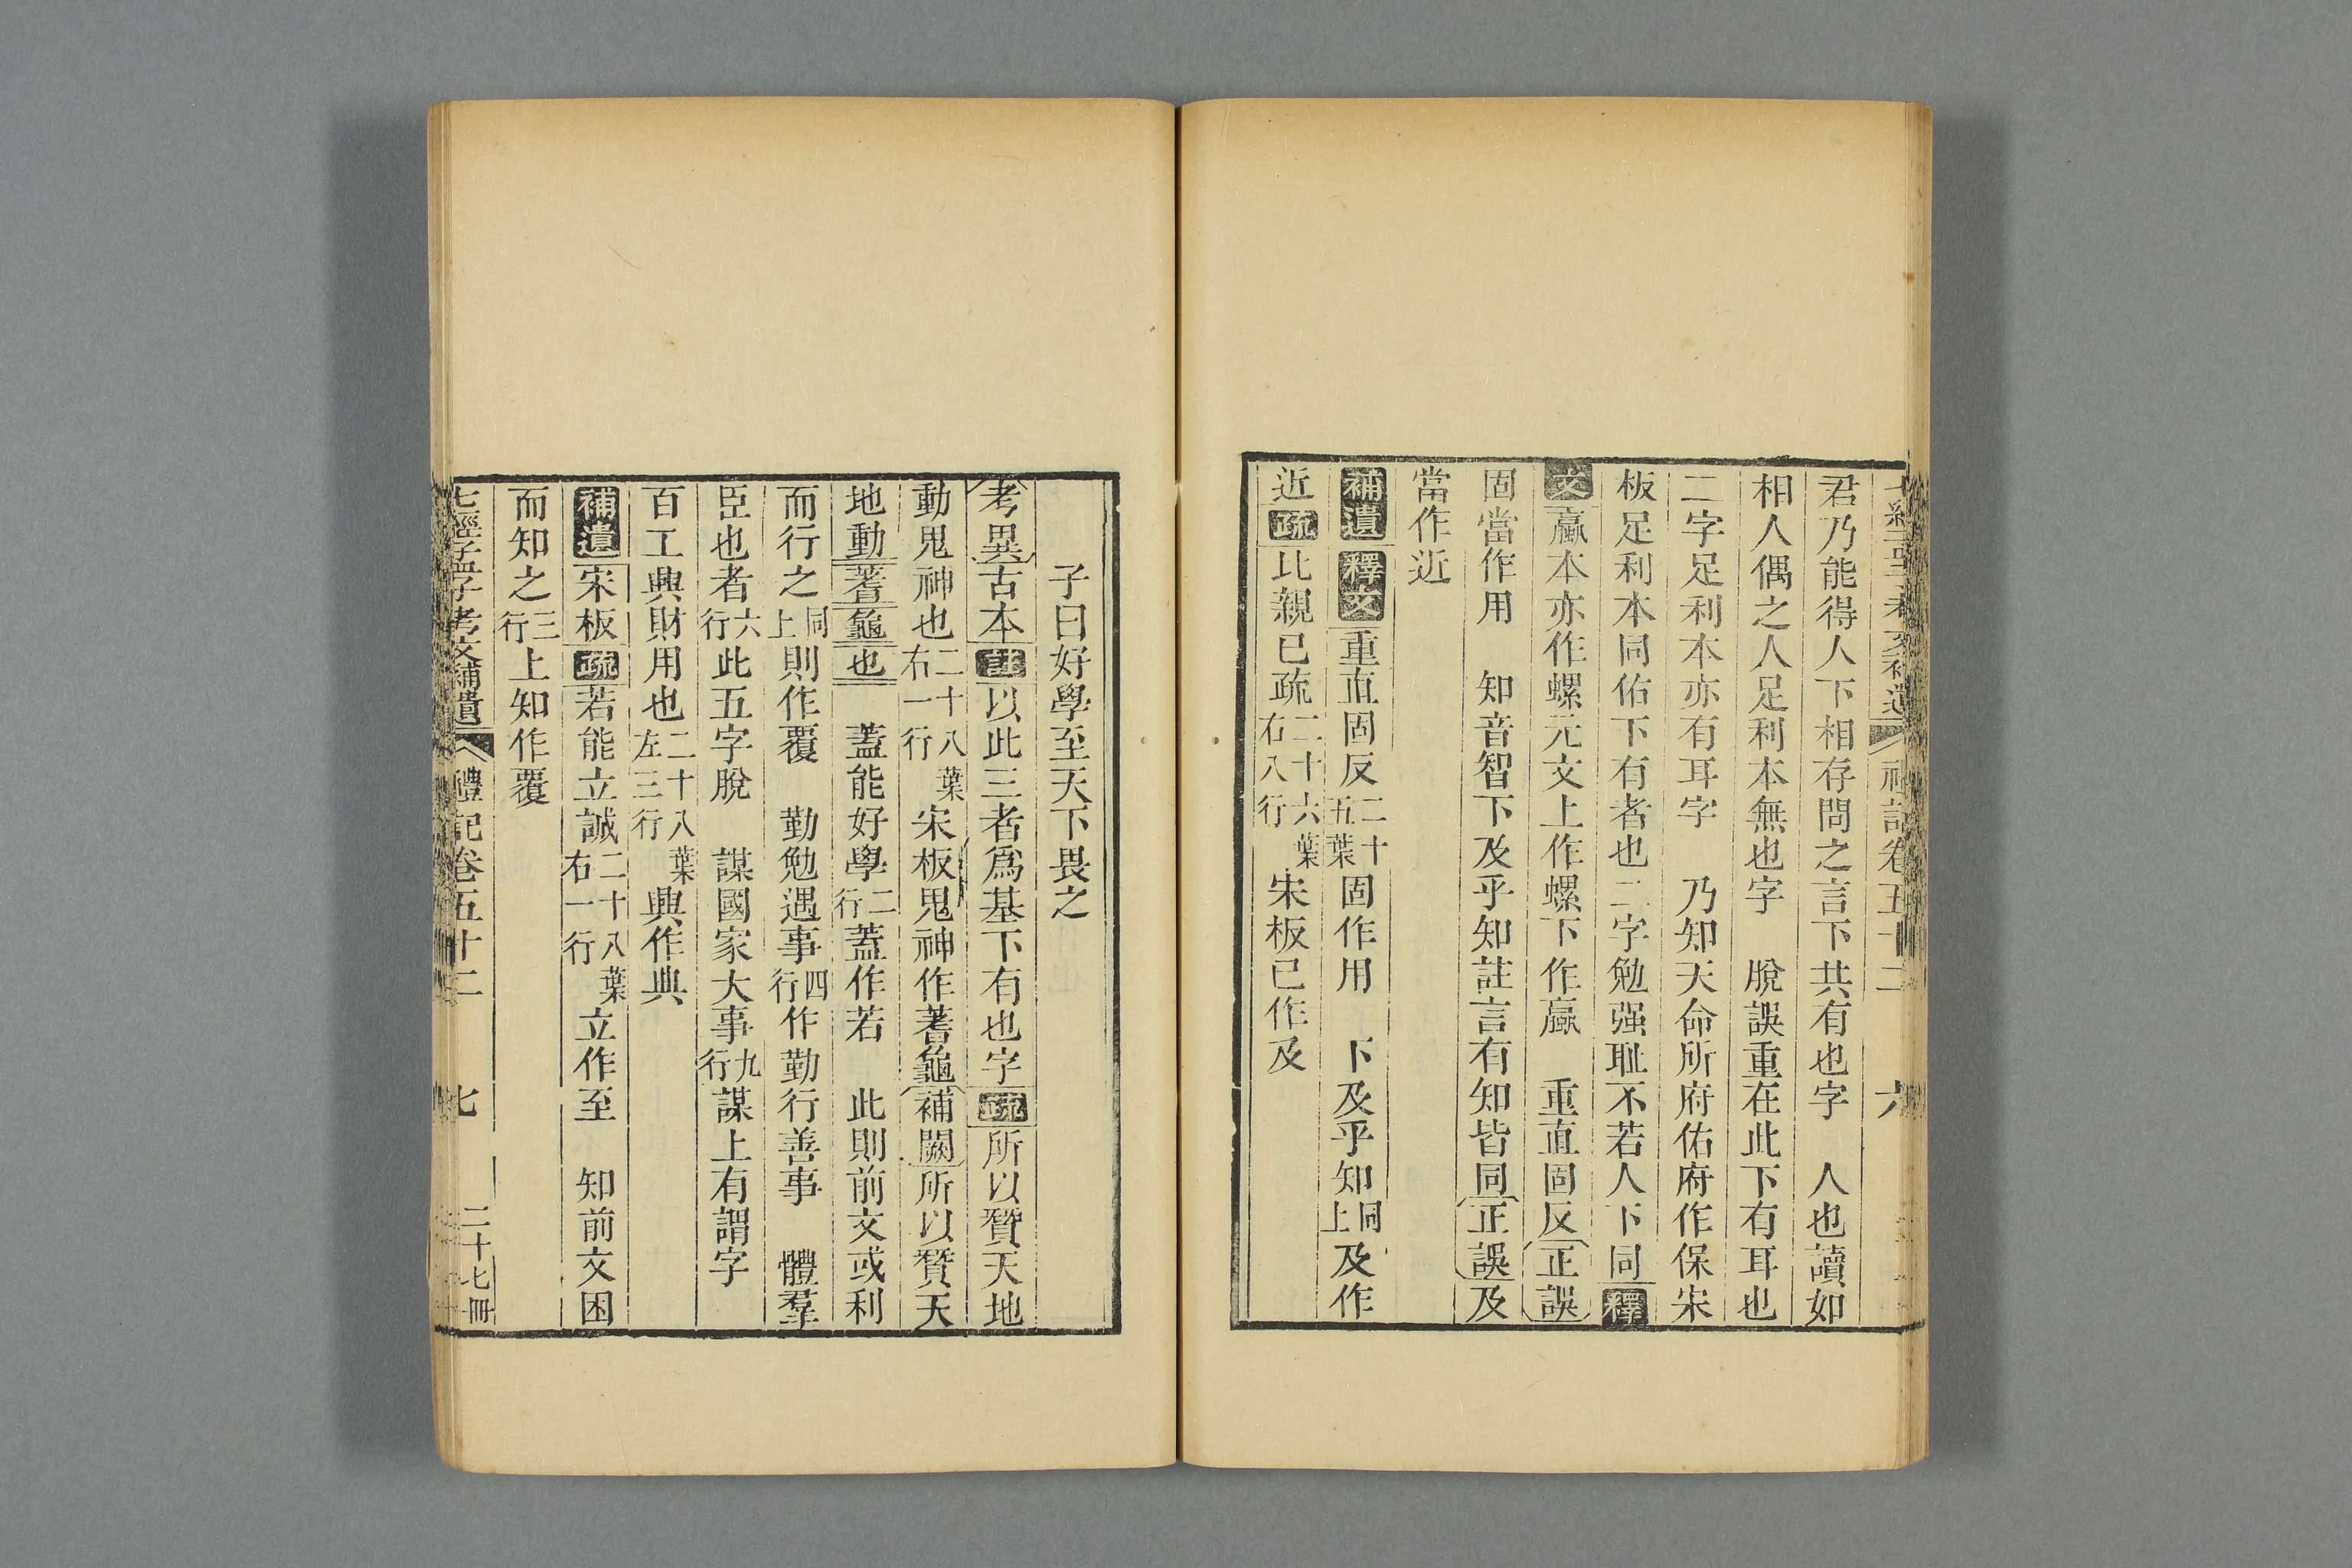 君乃能得人下相存問之言下共有也字　人也讀如
相人偶之人足利本無也字　脫誤重在此下有耳也
二字足利本亦有耳字　乃知天命所府佑府作保宋
板足利本同佑下有者也二字勉强恥不若人下同釋
文蠃本亦作螺元文上作螺下作蠃　重直固反正誤
固當作用　知音智下及乎知註言有知皆同正誤及
當作近
補遺釋文重直固反二十五葉固作用　下及乎知同上及作
近疏比親已疏二十六葉右八行宋板已作及
子曰好學至天下畏之
考異古本註以此三者爲基下有也字疏所以贊天地
動鬼神也二十八葉右一行宋板鬼神作蓍龜補闕所以贊天
地動蓍龜也　蓋能好學二行蓋作若　此則前文或利
而行之同上則作覆　勤勉遇事四行作勤行善事　體羣
臣也者六行此五字脫　謀國家大事九行謀上有謂字
百工興財用也二十八葉左三行興作典
補遺宋板疏若能立誠二十八葉右一行立作至　知前文困
而知之三行上知作覆
七經孟子考文補遺　禮記卷五十二　七　二十七冊